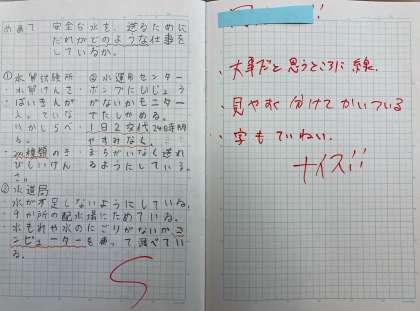 めあて 安全な水を、送るために
だれがどのような仕事を
しているか。
①水質試験所
・水質けんさ
・ばいきんが
入っていな
いかしらべ
る
種類のき
びしいけん
さ。
③水運用センター
・ポンプにいじょう
がないかモニター
でたしかめる。
・1日2交代24時間
やすみなし。
まちがいなく送れ
るようにしている。
②水道局
・水が不足しないようにしている。
・9か所の配水場にためている。
・水もれや水のにごりがないかコ
ンピューターをあって調べてい
る。
・大事だと思うところに線。
・見やすく分けてかいている
・字もていねい。
ナイス!!